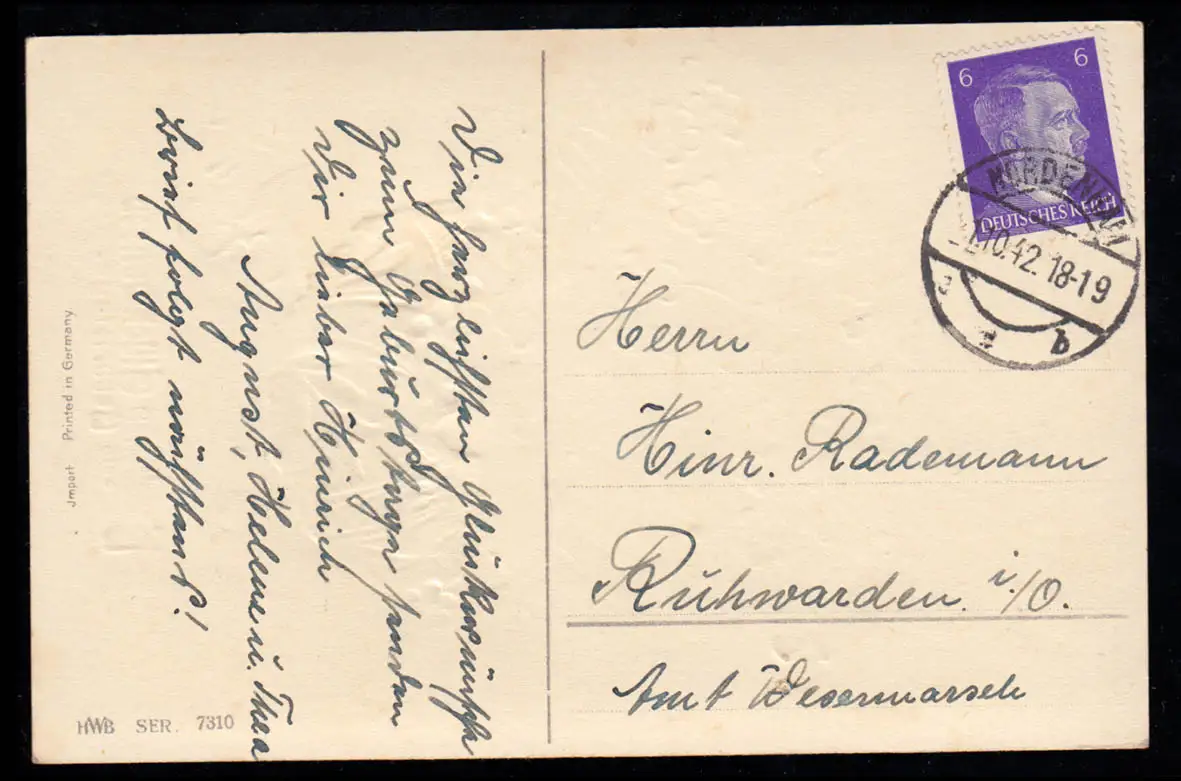 Die herzlichsten Glückwünsche
zum Geburtstage senden
Dir lieber Heinrich
August, Helene u. Thea
Brief folgt nächstens!
Jmport Printed in Germany.
HWB SER. 7310
6 6
DEUTSCHES REICH
NORDENHAM
10.42. 18-19
a b
Herrn
Hinr. Rademann
Ruhwarden i./O.
Amt Wesermarsch